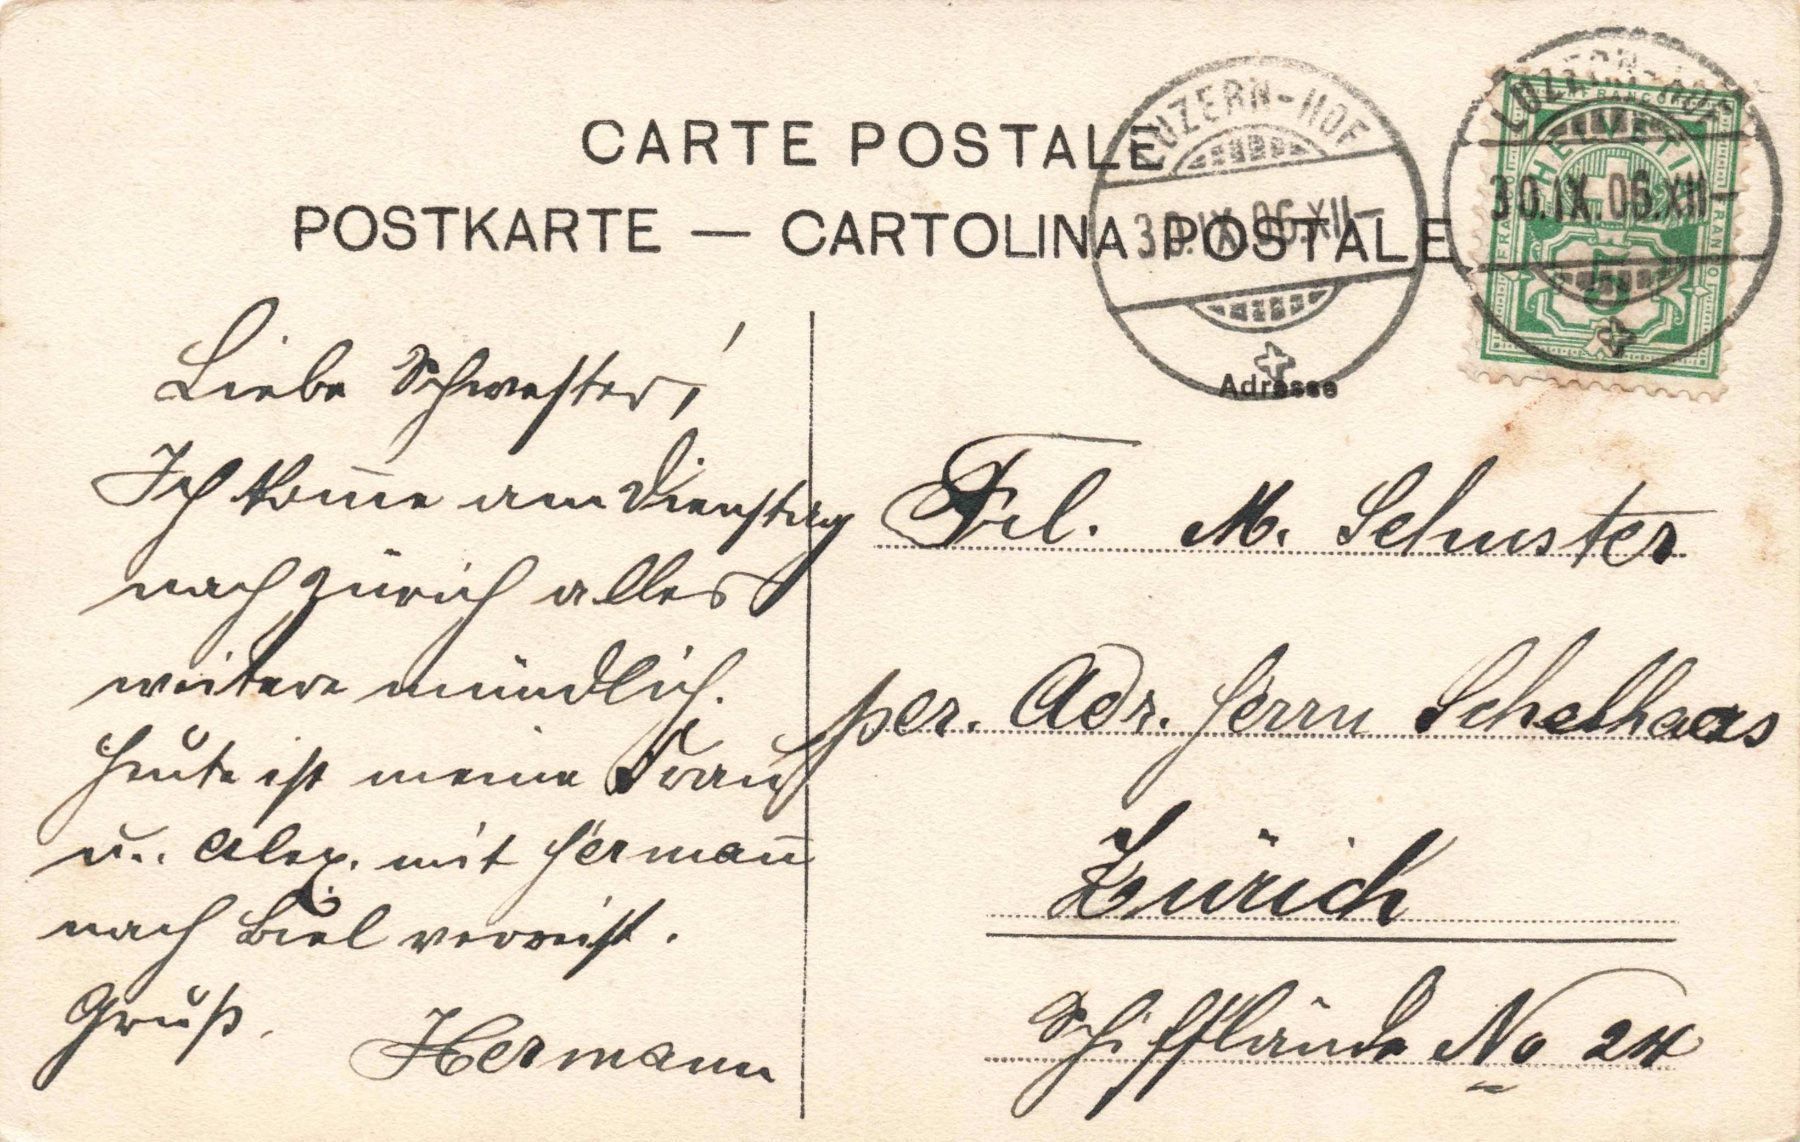 CARTE POSTALE
POSTKARTE — CARTOLINA POSTALE
LUZERN-HOF
30.IX.06.XII-
LUZERN-HOF
30.IX.06.XII-
FRANCO
HELVETIA
FRANCO
FRANCO
5
Adresse
Liebe Schwester!
Ich kom̅e am Dienstag
nach Zürich alles
weitere mündlich.
Heute ist meine Frau
u. Alex. mit Herman̅
nach Biel verreist.
Gruß.
Hermann
Frl. M. Schuster
per. Adr. Herrn Schelhaas
Zürich
Schifflände No 24